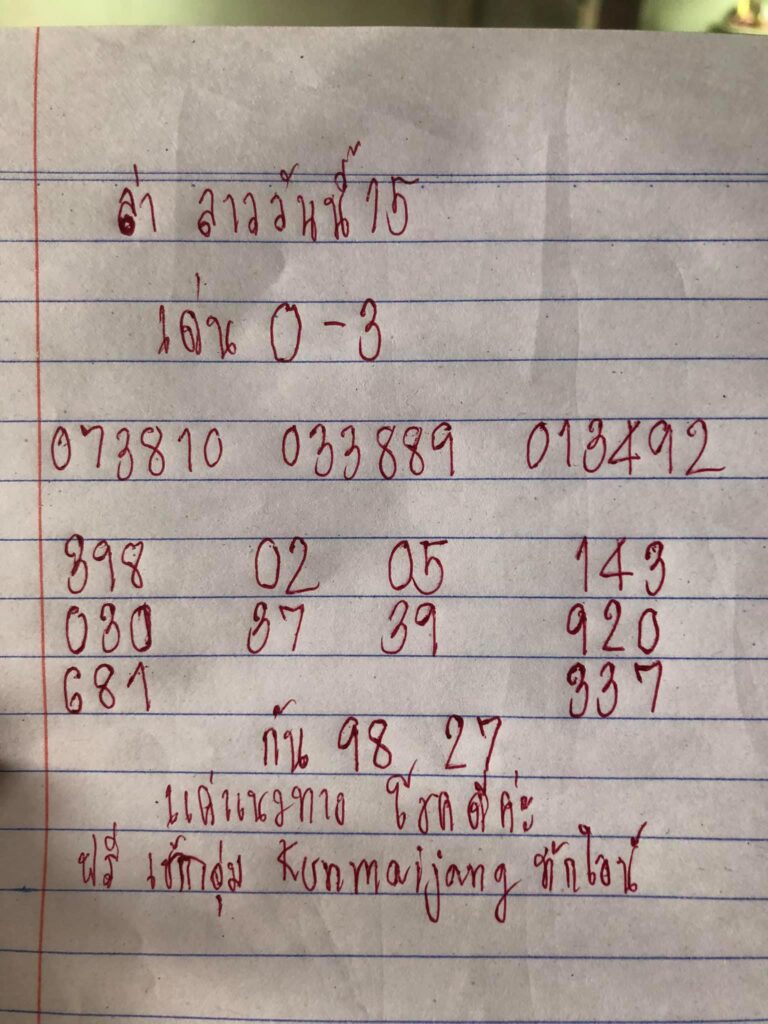 ล่า ลาววันนี้ 15
เด่น 0-3
073810 033889 013492
398 02 05 143
030 37 39 920
681 337
กัน 98 27
แค่แนวทาง โชคดีค่ะ
ฟรี เข้ากลุ่ม Kunmaijang ทักไลน์